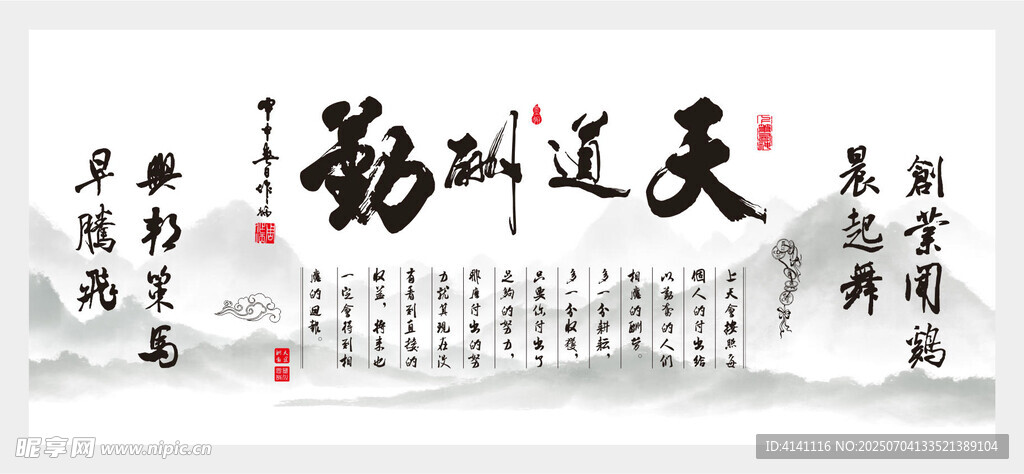 天道酬勤
創業闻鷄
晨起舞
上天會按照每
個人的付出给
以勤奮的人們
相應的酬劳。
多一分耕耘，
多一分收穫，
只要你付出了
足夠的努力，
那麼付出的努
力就算現在没
有看到直接的
收益，将来也
一定會得到相
應的回報。
興邦策馬
早騰飛
昵享网 www.nipic.cn
ID:4141116 NO:20250704133521389104